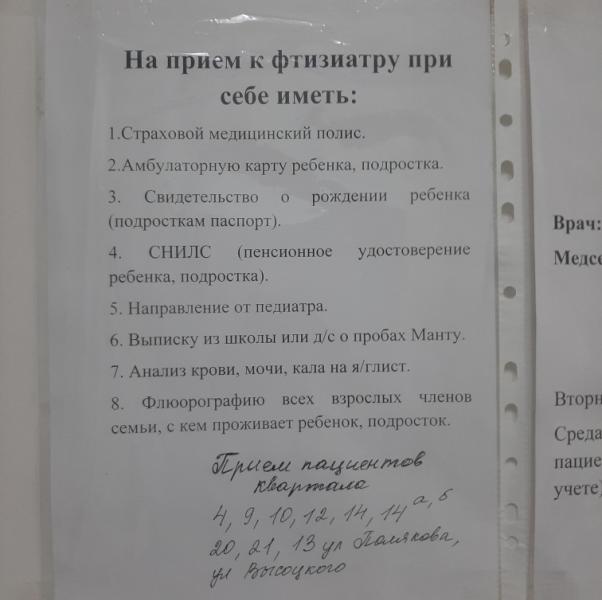 На прием к фтизиатру при
себе иметь:
1.Страховой медицинский полис.
2.Амбулаторную карту ребенка, подростка.
3. Свидетельство о рождении ребенка
(подросткам паспорт).
4. СНИЛС (пенсионное удостоверение
ребенка, подростка).
5. Направление от педиатра.
6. Выписку из школы или д/с о пробах Манту.
7. Анализ крови, мочи, кала на я/глист.
8. Флюорографию всех взрослых членов
семьи, с кем проживает ребенок, подросток.
Прием пациентов
квартала
4, 9, 10, 12, 14, 14 а, б
20, 21, 13 ул Полякова,
ул Высоцкого
Врач:
Медсе
Вторн
Среда
пацие
учете)